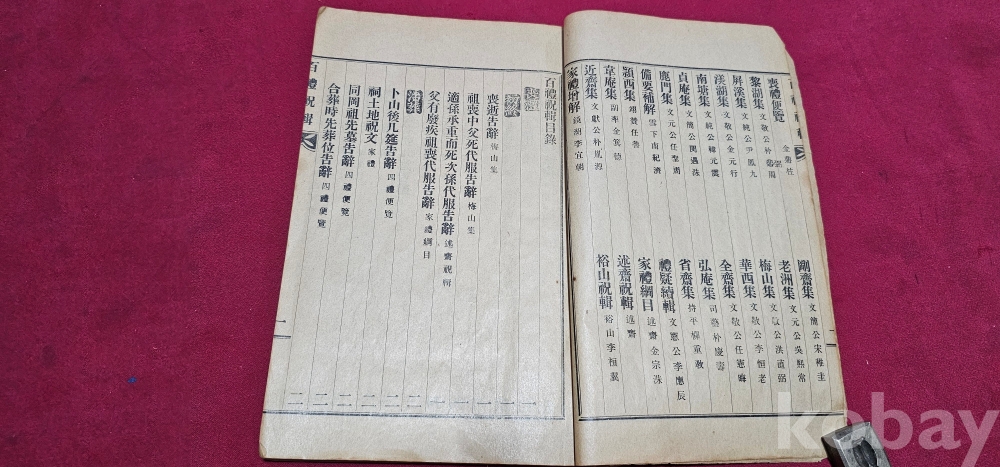 百禮祝輯
喪禮便覽
黎湖集 文敬公朴弼周
屏溪集 文純公尹鳳九
渼湖集 文敬公金元行
南塘集 文純公韓元震
貞庵集 文簡公閔遇洙
鹿門集 文元公任聖周
備要補解 雪下南紀濟
潁西集 翊贊任魯
韋庵集 副率金箕
近齋集 文獻公朴胤源
家禮增解 鏡湖李宜朝
剛齋集 文簡公宋穉圭
老洲集 文元公吳熙常
梅山集 文敬公洪直弼
華西集 文敬公李恒老
全齋集 文敬公任憲晦
弘庵集 司藝朴慶壽
省齋集 持平柳重教
禮疑續輯 文憲公李應辰
家禮綱目 述齋金宗洙
述齋祝輯 述齋
裕山祝輯 裕山李恒翼
百禮祝輯目錄
喪逝告辭 梅山集 一
祖喪中父死代服告辭 梅山集 一
適孫承重而死次孫代服告辭 述齋祝輯 一
父有廢疾祖喪代服告辭 家禮綱目 一
卜山後几筵告辭 四禮便覽 二
祠土地祝文 家禮 二
同岡祖先墓告辭 四禮便覽 二
合葬時先葬位告辭 四禮便覽 二
百禮祝輯
一
kobay